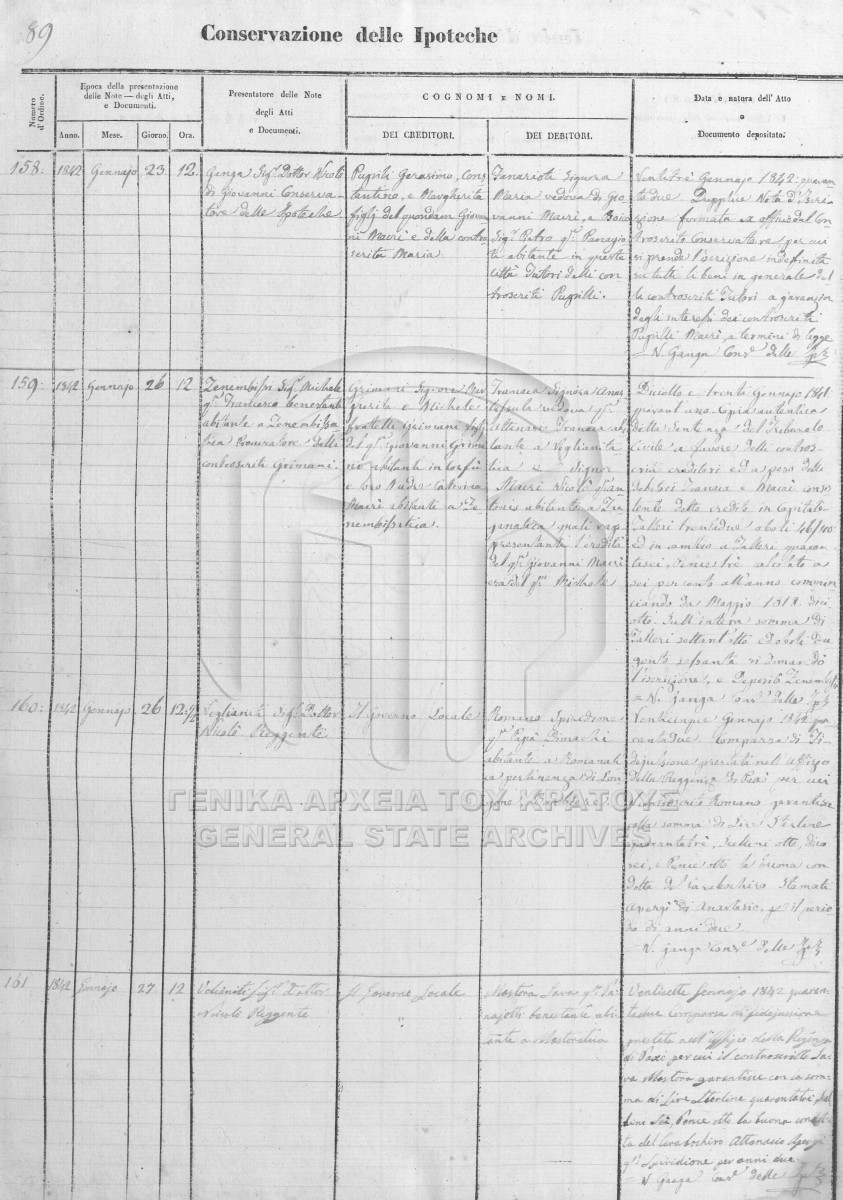 89
Conservazione delle Ipoteche
Numero d'Ordine.
Epoca della presentazione
delle Note — degli Atti,
e Documenti.
Anno. Mese. Giorno. Ora.
Presentatore delle Note
degli Atti
e Documenti.
COGNOMI E NOMI.
DEI CREDITORI. DEI DEBITORI.
Data e natura dell' Atto
o
Documento depositato.
158. 1842 Gennajo 23. 12.
Ganga Sigr. Dottor Nicolò
di Giovanni Conserva-
tore delle Ipoteche
Pupilli Gerasimo, Cos-
tantino, e Margherita
figlj del quondam Giovan
ni Macrì e della contro
scritta Maria
Signora
Maria vedova di Gio
vanni Macrì, e
Sigr. Pietro qm. Panagio
abitante in questa
Città Tutori delli con
troscritti Pupilli.
Ventitrè Gennajo 1842 quaran
tadue Nota d'Iscri
zione formata ex officio dal Con
troscritto Conservatore per cui
si prende l'iscrizione indefinita
su tutti li beni in generale del
la controscritti Tutori a garanzia
degli interessi dei controscritti
Pupilli Macrì a termini di legge
N. Ganga Consr. delle
159. 1842 Gennajo 26 12
Zenembissi Sigr. Michele
qm. Francesco benestante
abitante a Zenembissa-
tica Procuratore delle
controscritte Grimani.
Grimani Signora
e Michele
fratelli Grimani
del qm. Giovanni Grima
ni abitanti in Corfù
e loro Madre Catterina
Macrì abitanti a Ze
nembisatica.
Signora Anas
vedova qm.
abi
tante a
e Signor
Macrì Nicolò qm. An
tonio abitante a
quali rap
presentanti l'eredità
del qm. Giovanni Macrì
era del qm. Michele
trenta Gennajo 1841
quarant'uno copia autentica
della Sentenza del Tribunale
Civile a favore delli contros
critti creditori ed a peso delle
debitori e Macrì
detto credito in capitale
Talleri trentadue oboli 46/100
Talleri quaran
tasei,
sei per cento all'anno commin
ciando da Maggio 1818. dici
otto. Sull'intera somma di
Talleri settant'otto ed oboli
sessanta si domandò
l'iscrizione, e Deposito Zenembissi
N. Ganga Consr. delle
160. 1842 Gennajo 26 12 1/2
Sigr. Dottor
Nicolò Reggente
Il Governo Locale
Romano Spiridione
qm. Papà
abitante a Romanati
ca pertinenza di Lon
gone
Venticinque Gennajo 1842 qua
rantadue comparsa di fi
dejussione prestata nell'Officio
della Reggenza di Paxò per cui
Romano garantisce
colla somma di Lire Sterline
quarantatrè, Scellini otto,
sei, e Pence otto la buona con
dotta del Carabochiro Stamati
di Anastasio, per il perio
do di anni due.
N. Ganga Consr. delle
161 1842 Gennajo 27 12
Sigr. Dottor
Nicolò Reggente
Il Governo Locale
"
Mastora Sava qm. Pa
najotti benestante abi
tante a Mastoratica
Ventisette Gennajo 1842 quaran
tadue comparsa di fidejussione
prestata nell'Uffizio della Reggenza
di Paxò per cui il controscritto Sa
va Mastora garantisce con la som
ma di Lire Sterline quarantatrè, Scel
lini Sei, Pence otto la buona condot
ta del Carabochiro Attanasio
qm. Spiridione per anni due.
N. Ganga Consr. delle
ΓΕΝΙΚΑ ΑΡΧΕΙΑ ΤΟΥ ΚΡΑΤΟΥΣ
GENERAL STATE ARCHIVES